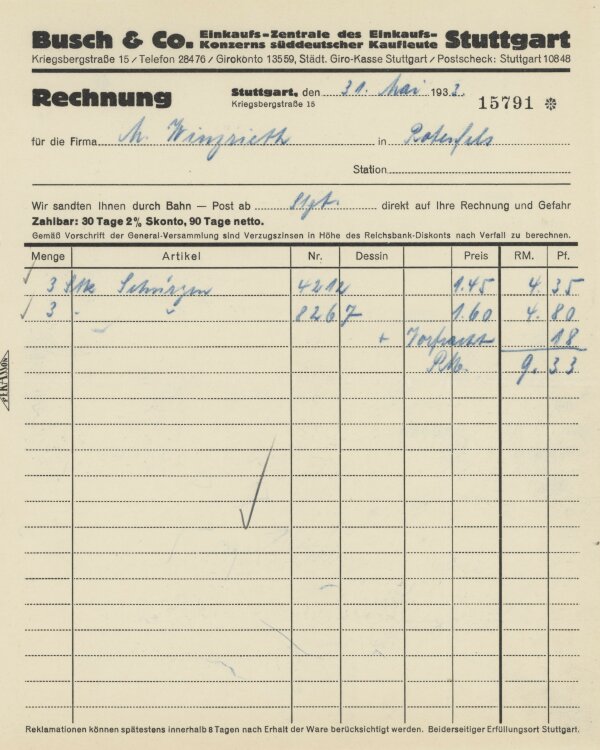 Busch & Co. Einkaufs-Zentrale des Einkaufs-Konzerns süddeutscher Kaufleute Stuttgart
Kriegsbergstraße 15 / Telefon 28476 / Girokonto 13559, Städt. Giro-Kasse Stuttgart / Postscheck: Stuttgart 10848
Rechnung
Stuttgart, den 31. Mai 1933.
Kriegsbergstraße 15
15791 ✻
für die Firma M. in Rotenfels
Station
Wir sandten Ihnen durch Bahn — Post ab Stgt. direkt auf Ihre Rechnung und Gefahr
Zahlbar: 30 Tage 2% Skonto, 90 Tage netto.
Gemäß Vorschrift der General-Versammlung sind Verzugszinsen in Höhe des Reichsbank-Diskonts nach Verfall zu berechnen.
Menge Artikel Nr. Dessin Preis RM. Pf.
3 Stk Schürzen 4212 1.45 4. 35
3 " " 8267 1.60 4. 80
+ Vorfracht 18
RM. 9. 33
Reklamationen können spätestens innerhalb 8 Tagen nach Erhalt der Ware berücksichtigt werden. Beiderseitiger Erfüllungsort Stuttgart.